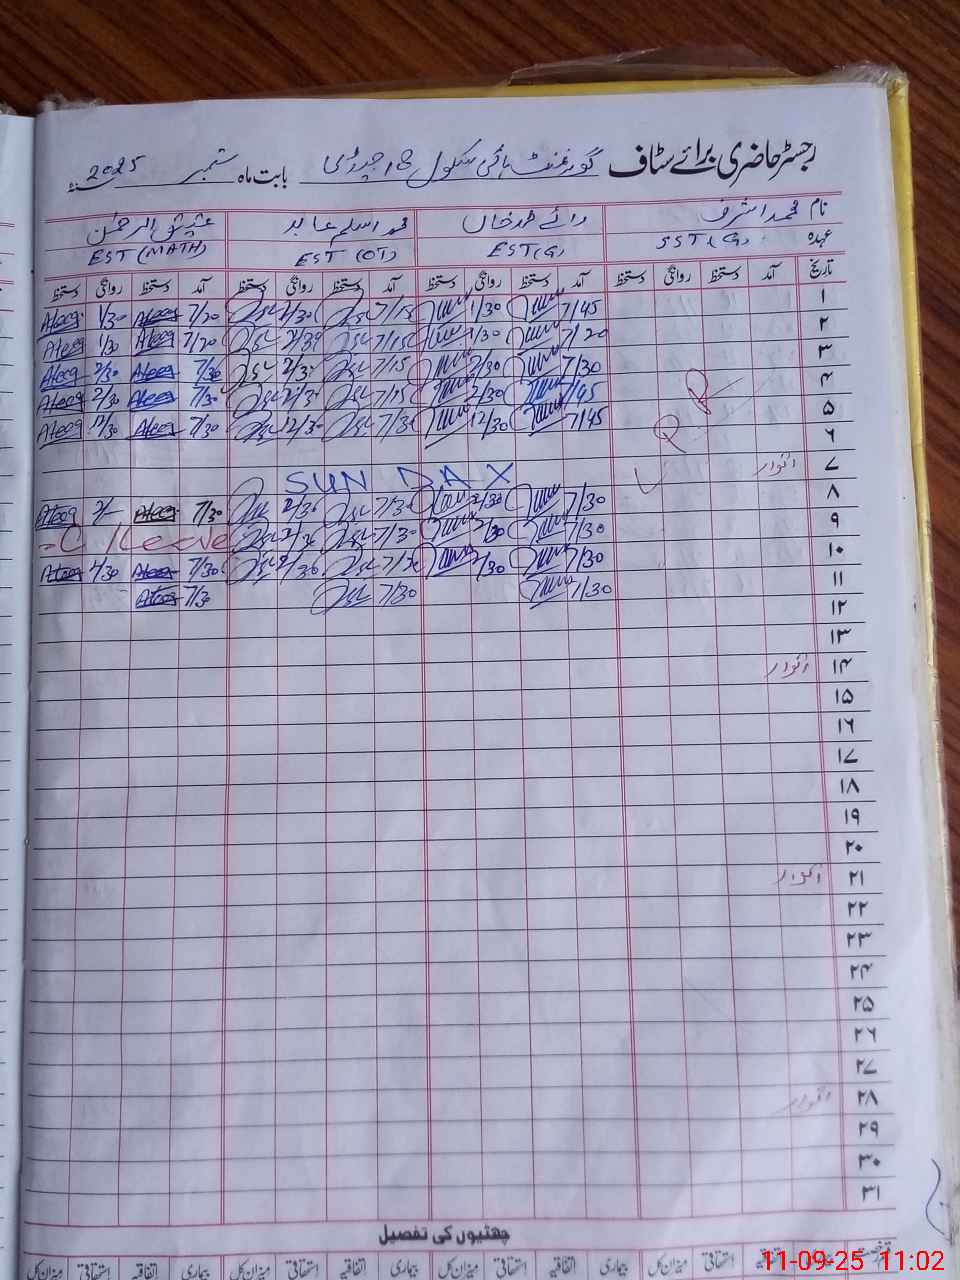 رجسٹر حاضری برائے سٹاف گورنمنٹ ہائی سکول 18 بابت ماہ ستمبر 2025ء
نام محمد اشرف محمد اسلم عابد عتیق الرحمٰن
عہدہ SST (G) EST (G) EST (OT) EST (MATH)
تاریخ آمد دستخط روانگی دستخط آمد دستخط روانگی دستخط آمد دستخط روانگی دستخط آمد دستخط روانگی دستخط
۱ 7/45 1/30 7/15 1/30 7/20 Ateeq 1/30 Ateeq
۲ 7/20 1/30 7/15 7/20 Ateeq 1/30 Ateeq
۳ 7/30 2/30 7/15 2/30 7/30 Ateeq 2/30 Ateeq
۴ 7/45 2/30 7/15 2/30 7/30 Ateeq 2/30 Ateeq
۵ 7/45 12/30 7/30 12/30 7/30 Ateeq 12/30 Ateeq
۶
۷ اتوار SUNDAY
۸ 7/30 2/30 7/30 2/30 7/30 Ateeq 2/- Ateeq
۹ 7/30 2/30 7/30 2/30 C/Leave
۱۰ 7/30 2/30 7/30 2/30 7/30 Ateeq 2/30 Ateeq
۱۱ 7/30 7/30 7/30 Ateeq
۱۲
۱۳
۱۴ اتوار
۱۵
۱۶
۱۷
۱۸
۱۹
۲۰
۲۱ اتوار
۲۲
۲۳
۲۴
۲۵
۲۶
۲۷
۲۸ اتوار
۲۹
۳۰
۳۱
چھٹیوں کی تفصیل
اتفاقیہ استحقاقی میزان کل بیماری اتفاقیہ استحقاقی میزان کل بیماری اتفاقیہ استحقاقی میزان کل بیماری اتفاقیہ استحقاقی میزان کل
11-09-25 11:02